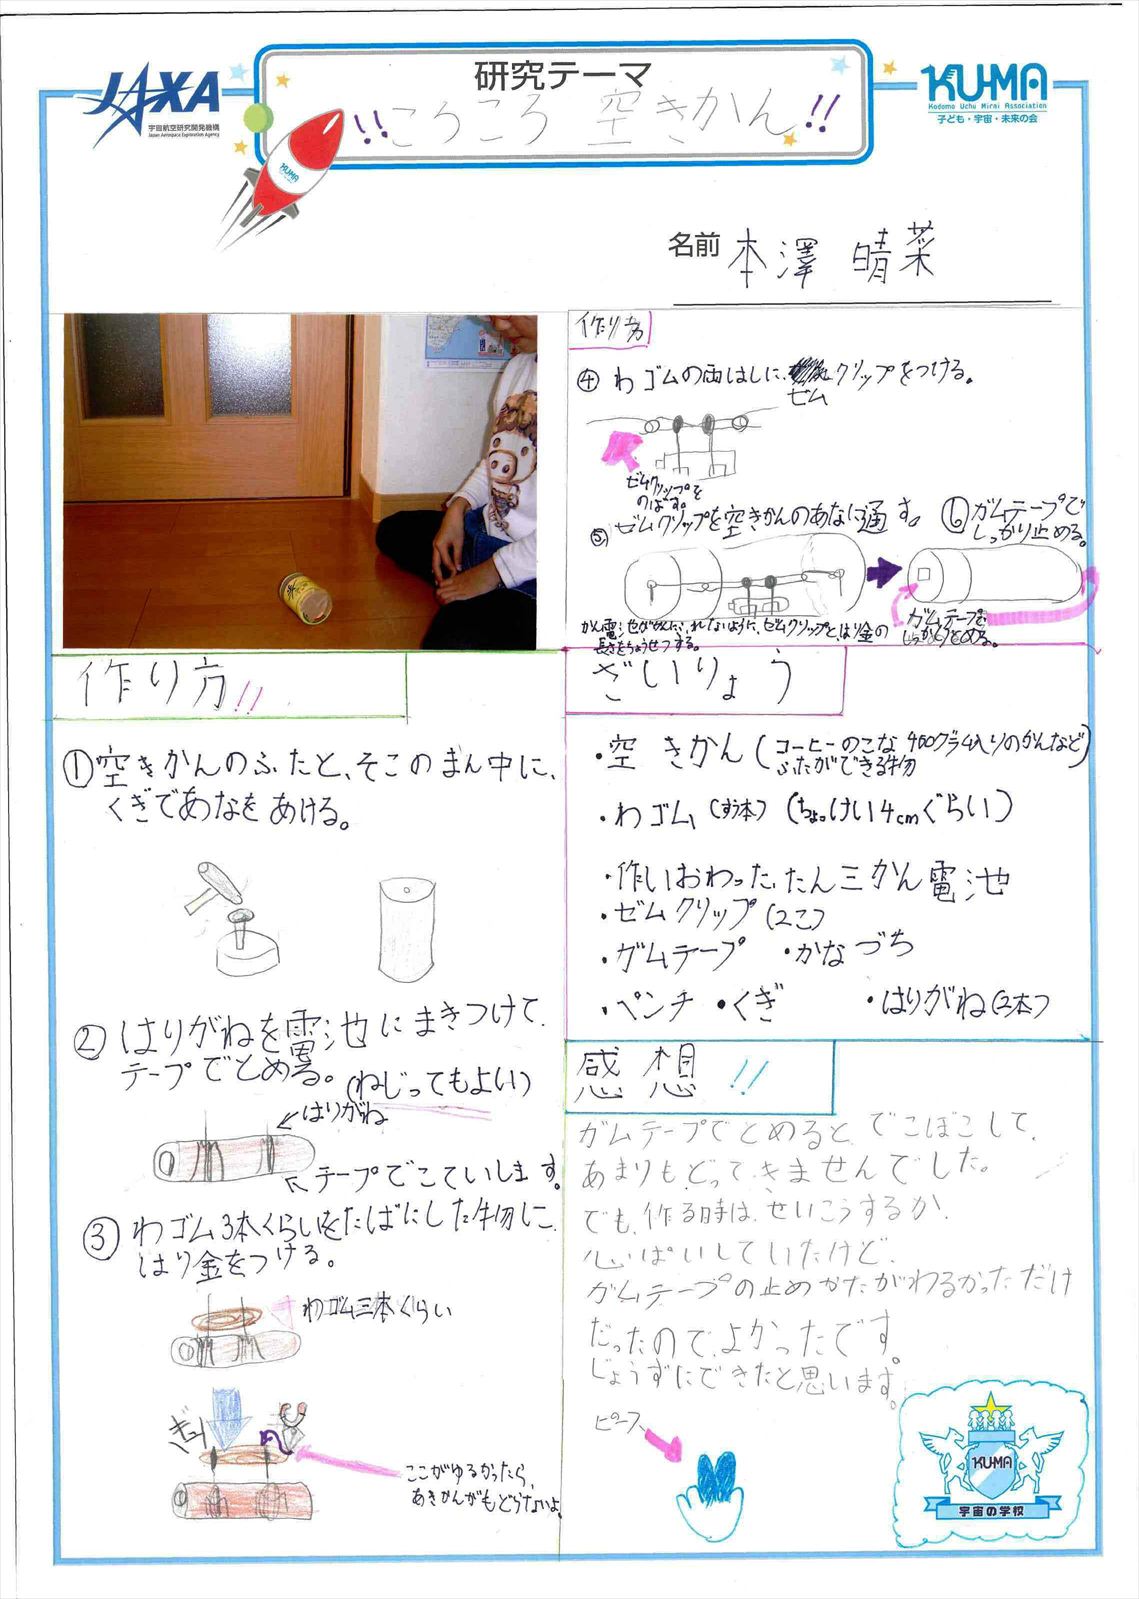 JAXA
宇宙航空研究開発機構
Japan Aerospace Exploration Agency
研究テーマ
!!ころころ 空きかん!!
KUMA
Kodomo Uchu Mirai Association
子ども・宇宙・未来の会
KUMA
名前 本澤 晴菜
作り方
④ わゴムの両はしに、ゼムクリップをつける。
ゼムクリップを
のばす。
⑤ ゼムクリップを空きかんのあなに通す。
⑥ ガムテープで
しっかり止める。
ガムテープで
しっかりとめる。
かん電池がかんに、ふれないように、ゼムクリップと、はり金の
長さをちょうせつする。
作り方!!
① 空きかんのふたと、そこのまん中に、
くぎであなをあける。
② はりがねを電池にまきつけて、
テープでとめる。(ねじってもよい)
はりがね
テープでこていします。
③ わゴム3本くらいをたばにした物に、
はり金をつける。
わゴム三本くらい
ぎゅっ
ここがゆるかったら、
あきかんがもどらないよ。
ざいりょう
・空きかん(コーヒーのこな 400グラム入りのかんなど
ふたができる物)
・わゴム(すう本)(ちょっけい4cmぐらい)
・作いおわった、たん三かん電池
・ゼムクリップ(2こ)
・ガムテープ ・かなづち
・ペンチ ・くぎ ・はりがね(2本)
感想!!
ガムテープでとめると、でこぼこして、
あまりもどってきませんでした。
でも、作る時は、せいこうするか、
心ぱいしていたけど、
ガムテープの止めかたがわるかっただけ
だったので、よかったです。
じょうずにできたと思います。
ピース
KUMA
宇宙の学校